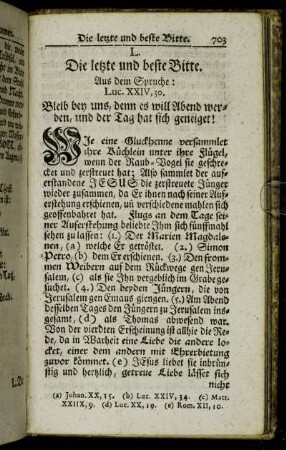 Die letzte und beste Bitte. 703
L.
Die letzte und beste Bitte.
Aus dem Spruche:
Luc. XXIV, 30.
Bleib bey uns, denn es will Abend wer-
den, und der Tag hat sich geneiget!
WIe eine Gluckhenne versammlet
ihre Küchlein unter ihre Flügel,
wenn der Raub-Vogel sie geschre-
cket und zerstreuet hat; Also sammlet der auf-
erstandene JESUS die zerstreuete Jünger
wieder zusammen, da Er ihnen nach seiner Aufer-
stehung erschienen, uñ verschiedene mahlen sich
geoffenbahret hat. Flugs an dem Tage sei-
ner Auferstehung beliebte Ihm sich fünffmahl
sehen zu lassen: (1.) Der Marien Magdale-
nen, (a) welche Er getröstet. (2.) Simon
Petro, (b) dem Er erschienen. (3.) Den from-
men Weibern auf dem Rückwege gen Jeru-
salem, (c) als sie Ihn vergeblich im Grabe ge-
suchet. (4.) Den beyden Jüngern, die von
Jerusalem gen Emaus giengen. (5.) Am Abend
desselben Tages den Jüngern zu Jerusalem ins-
gesamt, (d) als Thomas abwesend war.
Von der vierdten Erscheinung ist allhie die Re-
de, da in Warheit eine Liebe die andere lo-
cket, einer dem andern mit Ehrerbietung
zuvor kömmet. (e) JEsus liebet sie inbrün-
stig und hertzlich, getreue Liebe lässet sich
nicht
(a) Johan. XX, 15. (b) Luc. XXIV, 34. (c) Matt.
XXIIX, 9. (d) Luc. XX, 19. (e) Rom. XII, 10.